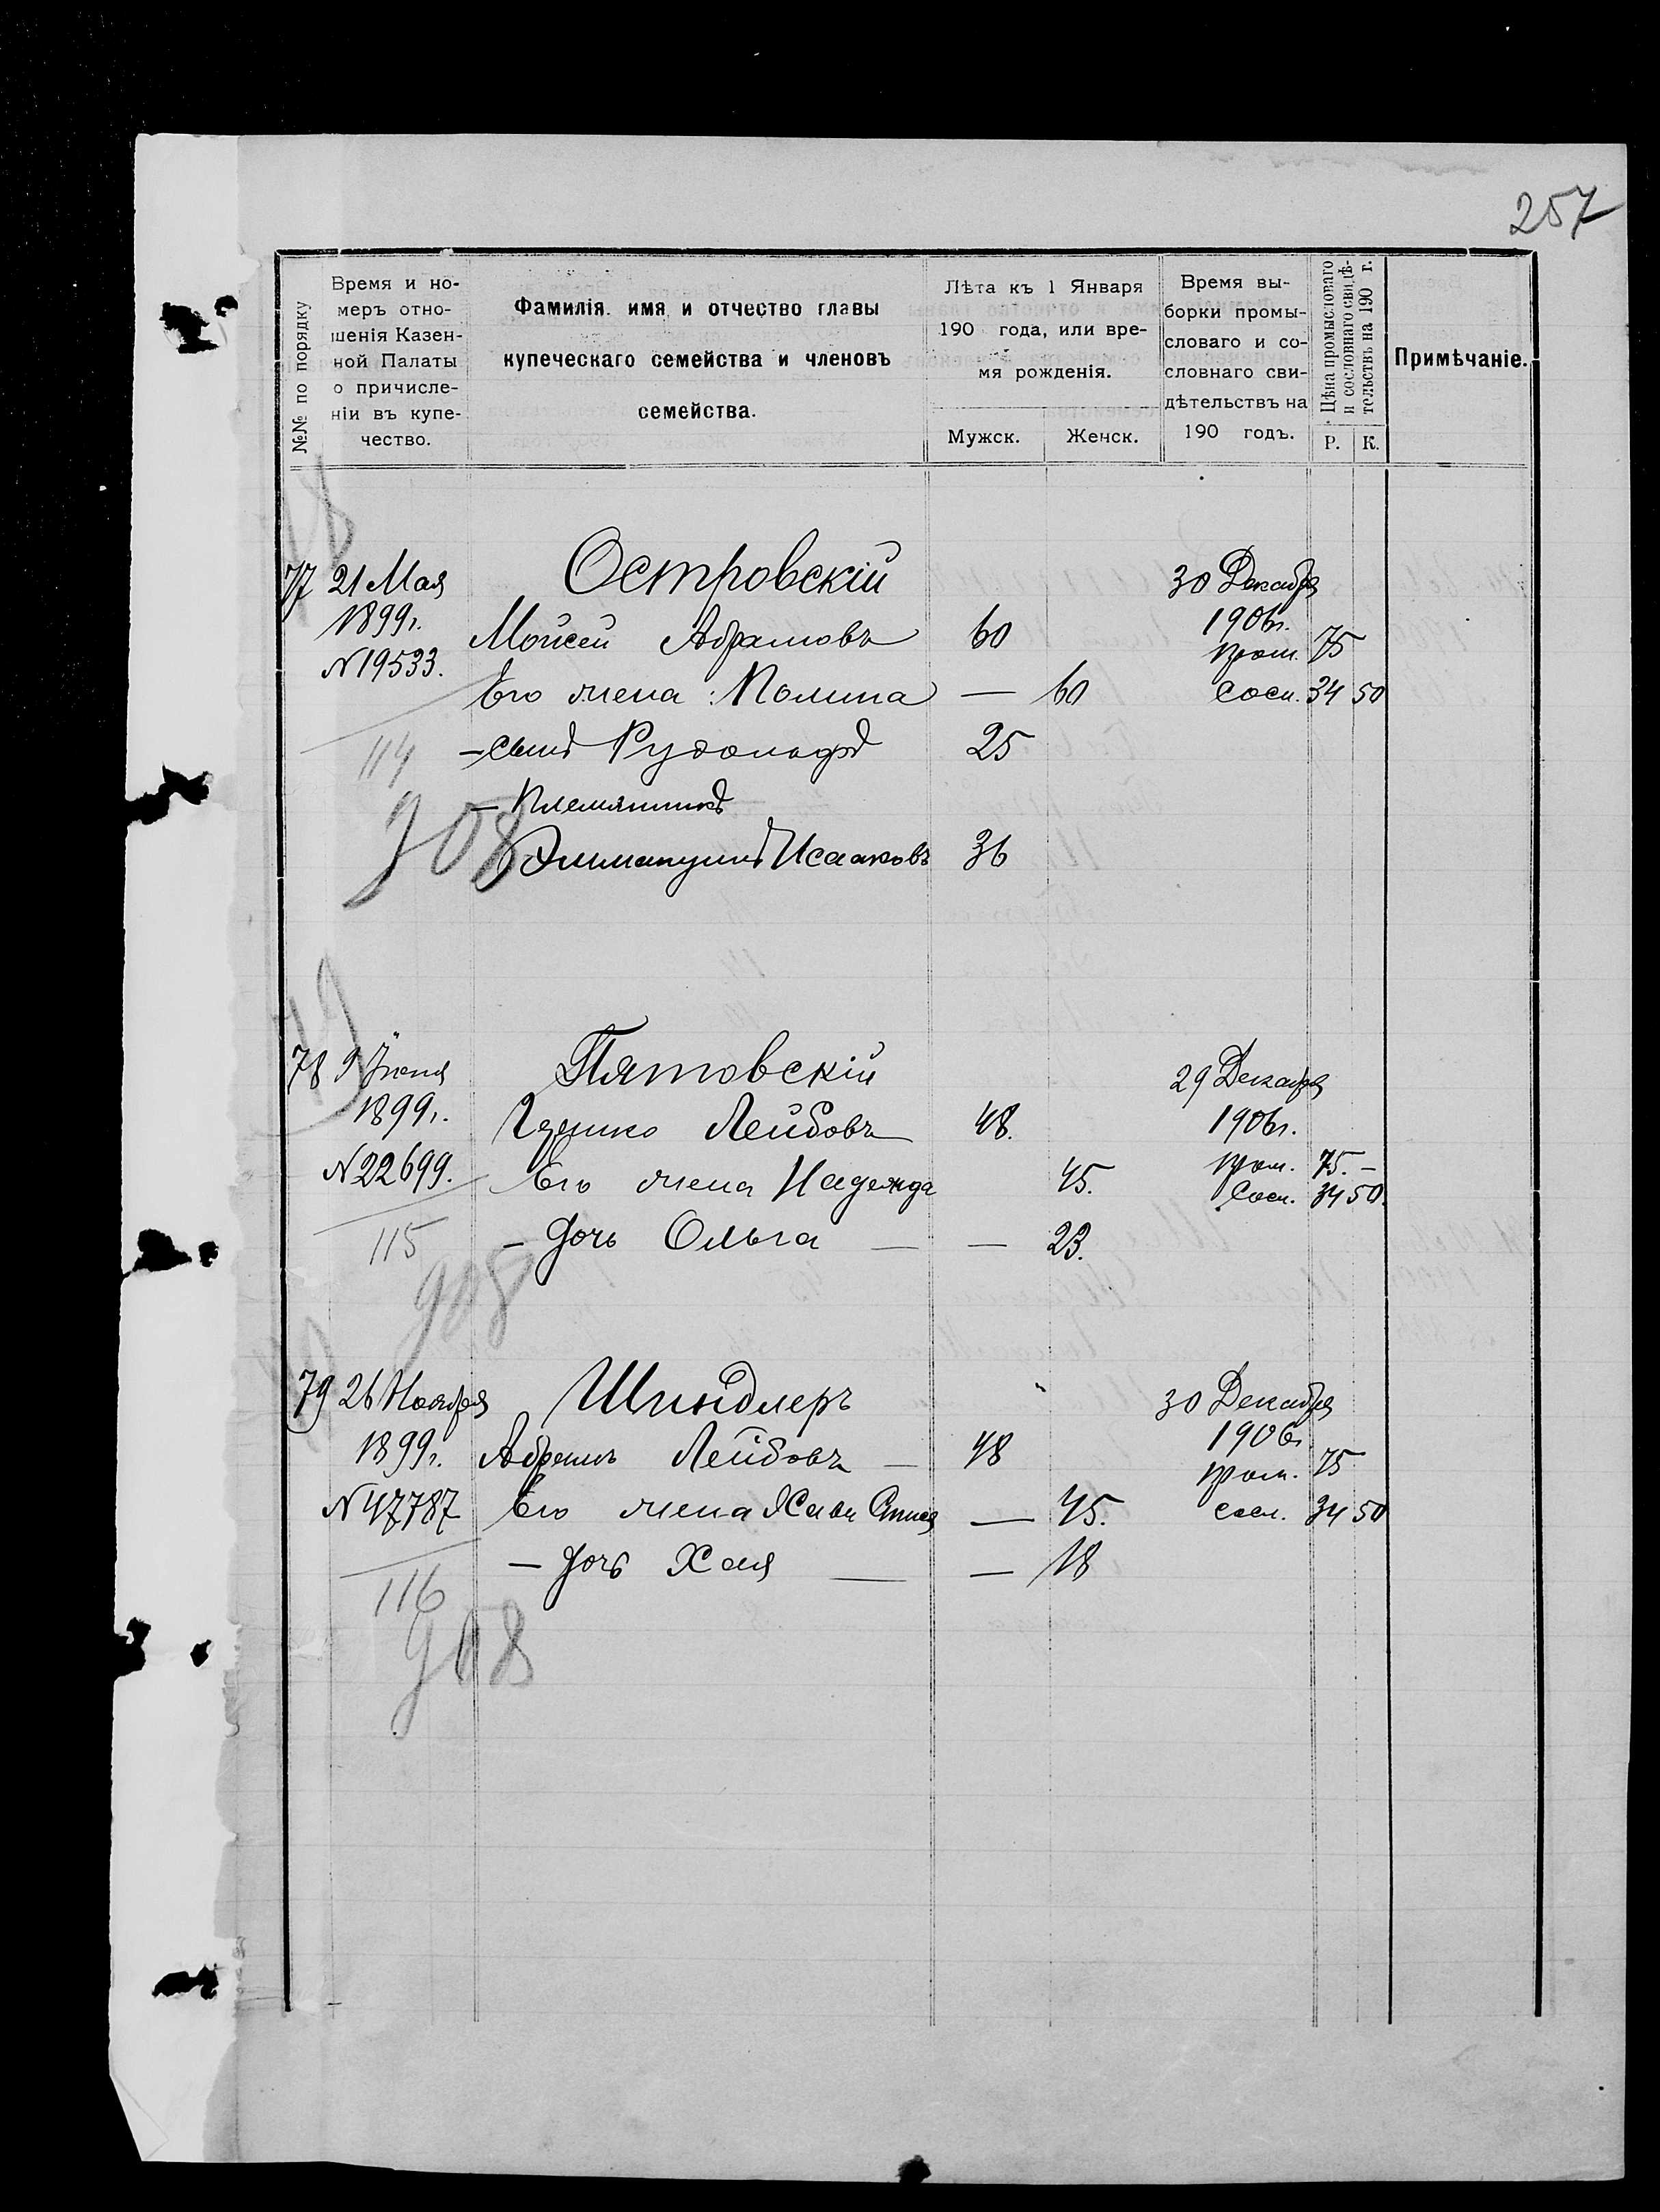 257
№№ по порядку
Время и но-
меръ отно-
шенія Казен-
ной Палаты
о причисле-
ніи въ купе-
чество.
Фамилія. имя и отчество главы
купеческаго семейства и членовъ
семейства.
Лѣта къ 1 Января
190 года, или вре-
мя рожденія.
Мужск. Женск.
Время вы-
борки промы-
словаго и со-
словнаго сви-
дѣтельствъ на
190 годъ.
Цѣна промысловаго
и сословнаго свидѣ-
тельствъ на 190 г.
Р. К.
Примѣчаніе.
78
77 21 Мая Островскій 30 Декабря
1899г. Мойсей Абрамовъ 60 1906г.
пром. 75
N19533. Его жена: Полина — 60 сосл. 34 50
114 – сынъ Рудольфъ 25
– Племянникъ
908 Эммануилъ Исааковъ 36
79
78 9 Іюня Пятовскій 29 Декабря
1899г. Лейбовъ 48. 1906г.
N22699. Его жена Надежда 45. пром. 75. –
Сосл. 34 50.
115 – дочь Ольга — — 23.
908
79 26 Ноября Шиндлеръ 30 Декабря
1899г. Абрамъ Лейбовъ — 48 1906г
пром. 75
N47787 Его жена — 45. сосл. 34 50
– дочь Хая — — 18
116
908